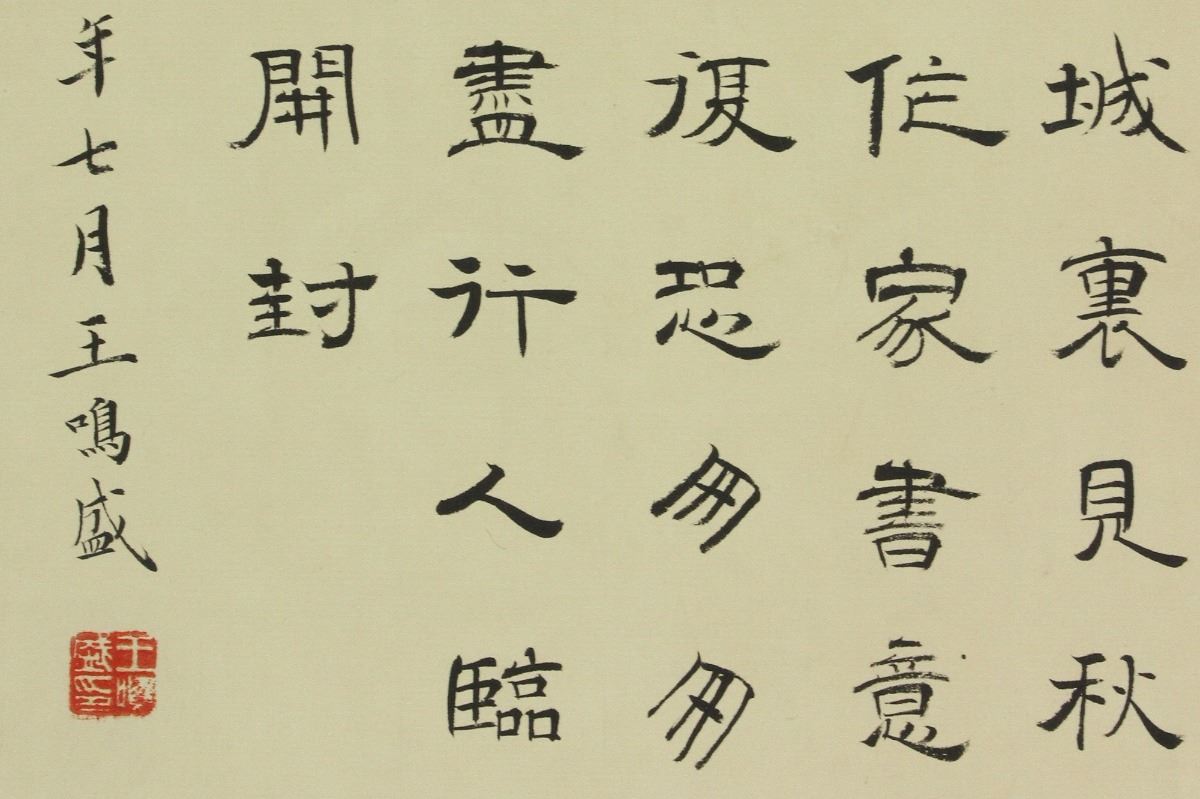 城裏見秋
作家書意
復恐匆匆
盡行人臨
開封
年七月王鳴盛
王鳴
盛印